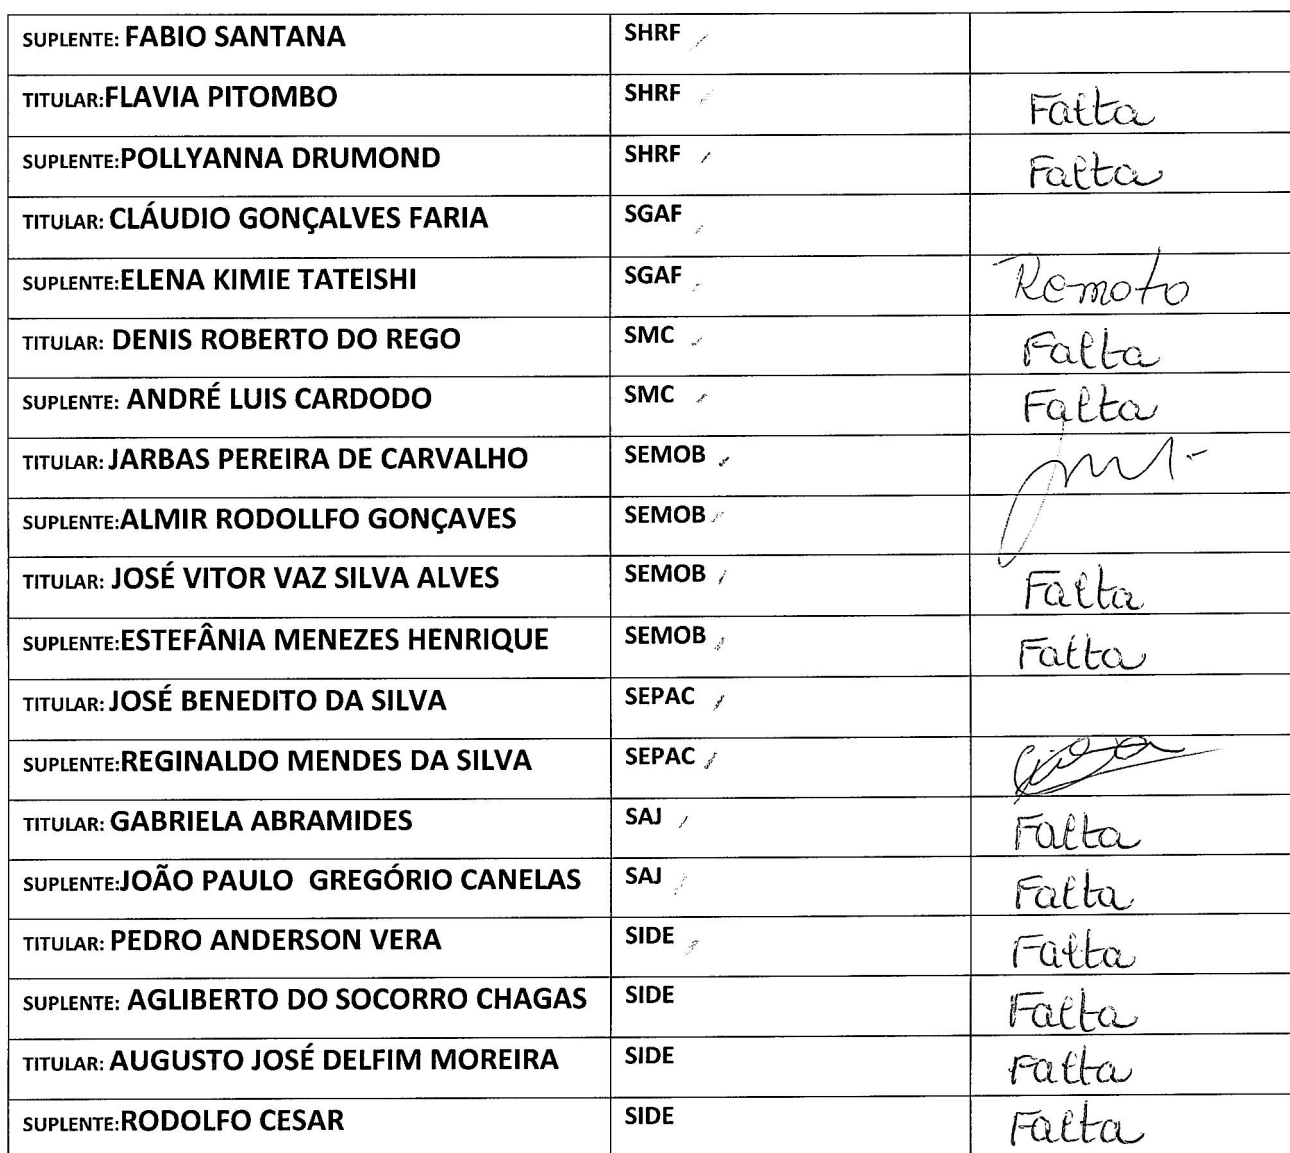 SUPLENTE: FABIO SANTANA SHRF
TITULAR:FLAVIA PITOMBO SHRF Falta
SUPLENTE:POLLYANNA DRUMOND SHRF Falta
TITULAR: CLÁUDIO GONÇALVES FARIA SGAF
SUPLENTE:ELENA KIMIE TATEISHI SGAF Remoto
TITULAR: DENIS ROBERTO DO REGO SMC Falta
SUPLENTE: ANDRÉ LUIS CARDODO SMC Falta
TITULAR: JARBAS PEREIRA DE CARVALHO SEMOB
SUPLENTE:ALMIR RODOLLFO GONÇAVES SEMOB
TITULAR: JOSÉ VITOR VAZ SILVA ALVES SEMOB Falta
SUPLENTE:ESTEFÂNIA MENEZES HENRIQUE SEMOB Falta
TITULAR: JOSÉ BENEDITO DA SILVA SEPAC
SUPLENTE:REGINALDO MENDES DA SILVA SEPAC
TITULAR: GABRIELA ABRAMIDES SAJ Falta
SUPLENTE:JOÃO PAULO GREGÓRIO CANELAS SAJ Falta
TITULAR: PEDRO ANDERSON VERA SIDE Falta
SUPLENTE: AGLIBERTO DO SOCORRO CHAGAS SIDE Falta
TITULAR: AUGUSTO JOSÉ DELFIM MOREIRA SIDE Falta
SUPLENTE:RODOLFO CESAR SIDE Falta